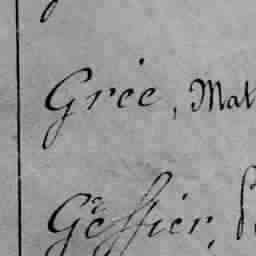 Grée, Mat
Geffier,